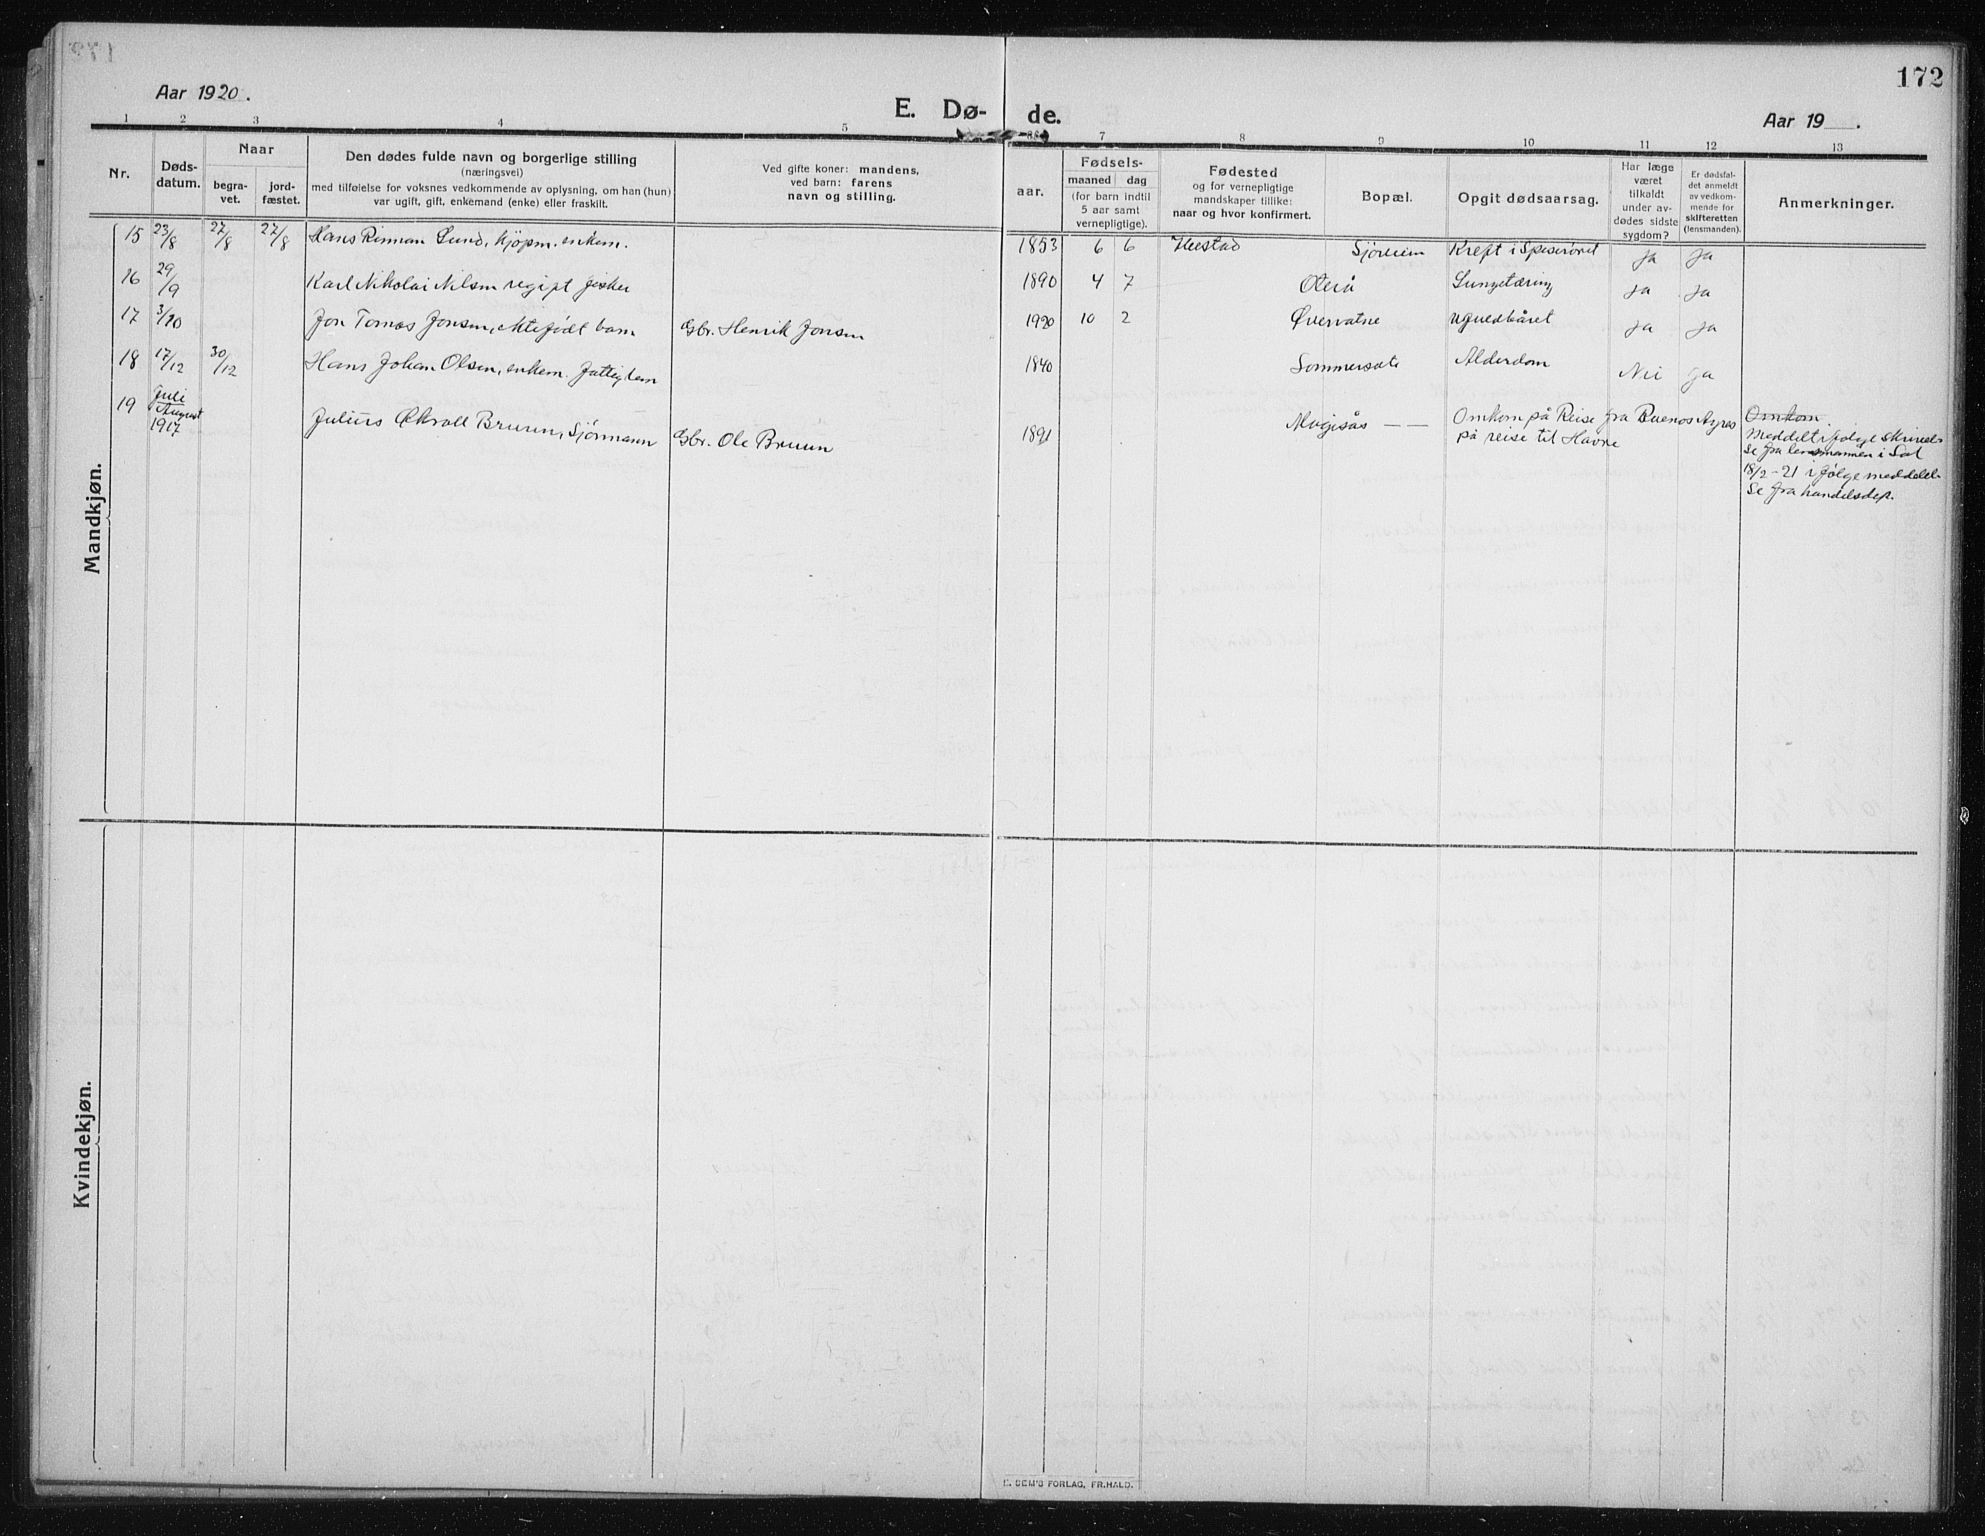 172
Aar 1920.
E. Dø- de.
Aar 19 .
1 2 3 4 5 7 8 9 10 11 12 13
Nr.
Døds-
datum.
Naar
begra-
vet.
jord-
fæstet.
Den dødes fulde navn og borgerlige stilling
(næringsvei)
med tilføielse for voksnes vedkommende av oplysning, om han (hun)
var ugift, gift, enkemand (enke) eller fraskilt.
Ved gifte koner: mandens,
ved barn: farens
navn og stilling.
aar.
Fødsels-
maaned dag
(for barn indtil
5 aar samt
vernepligtige).
Fødested
og for vernepligtige
mandskaper tillike:
naar og hvor konfirmert.
Bopæl.
Opgit dødsaarsag.
Har læge
været
tilkaldt
under av-
dødes sidste
sygdom?
Er dødsfal-
det anmeldt
av vedkom-
mende for
skifteretten
(lensmanden).
Anmerkninger.
Mandkjøn.
15 23/8 27/8 27/8 Hans Lund, kjøpm. enkem. 1853 6 6 Kreft i Spiserøret Ja Ja
16 29/9 Karl Nikolai Nilsen ugift fisker 1890 4 7 Lungetæring Ja Ja
17 3/10 Jon Tomas Jonsen, ektefødt barn Gbr. Henrik Jonsen 1920 10 2 Øvervatne Ja Ja
18 17/12 30/12 Hans Johan Olsen, enkem. fattiglem 1840 Sommerset Alderdom Nei Ja
19 Juli
August
1917
Julius Bruun, Sjømann Gbr. Ole Bruun 1891 Omkom på Reise fra Buenos Ayres
på reise til Havre
Omkom.
Meddelt ifølge skrivel-
se fra lensmannen i
18/2-21 i følge meddel-
se fra handelsdep.
Kvindekjøn.
E. SEM'S FORLAG, FR.HALD.